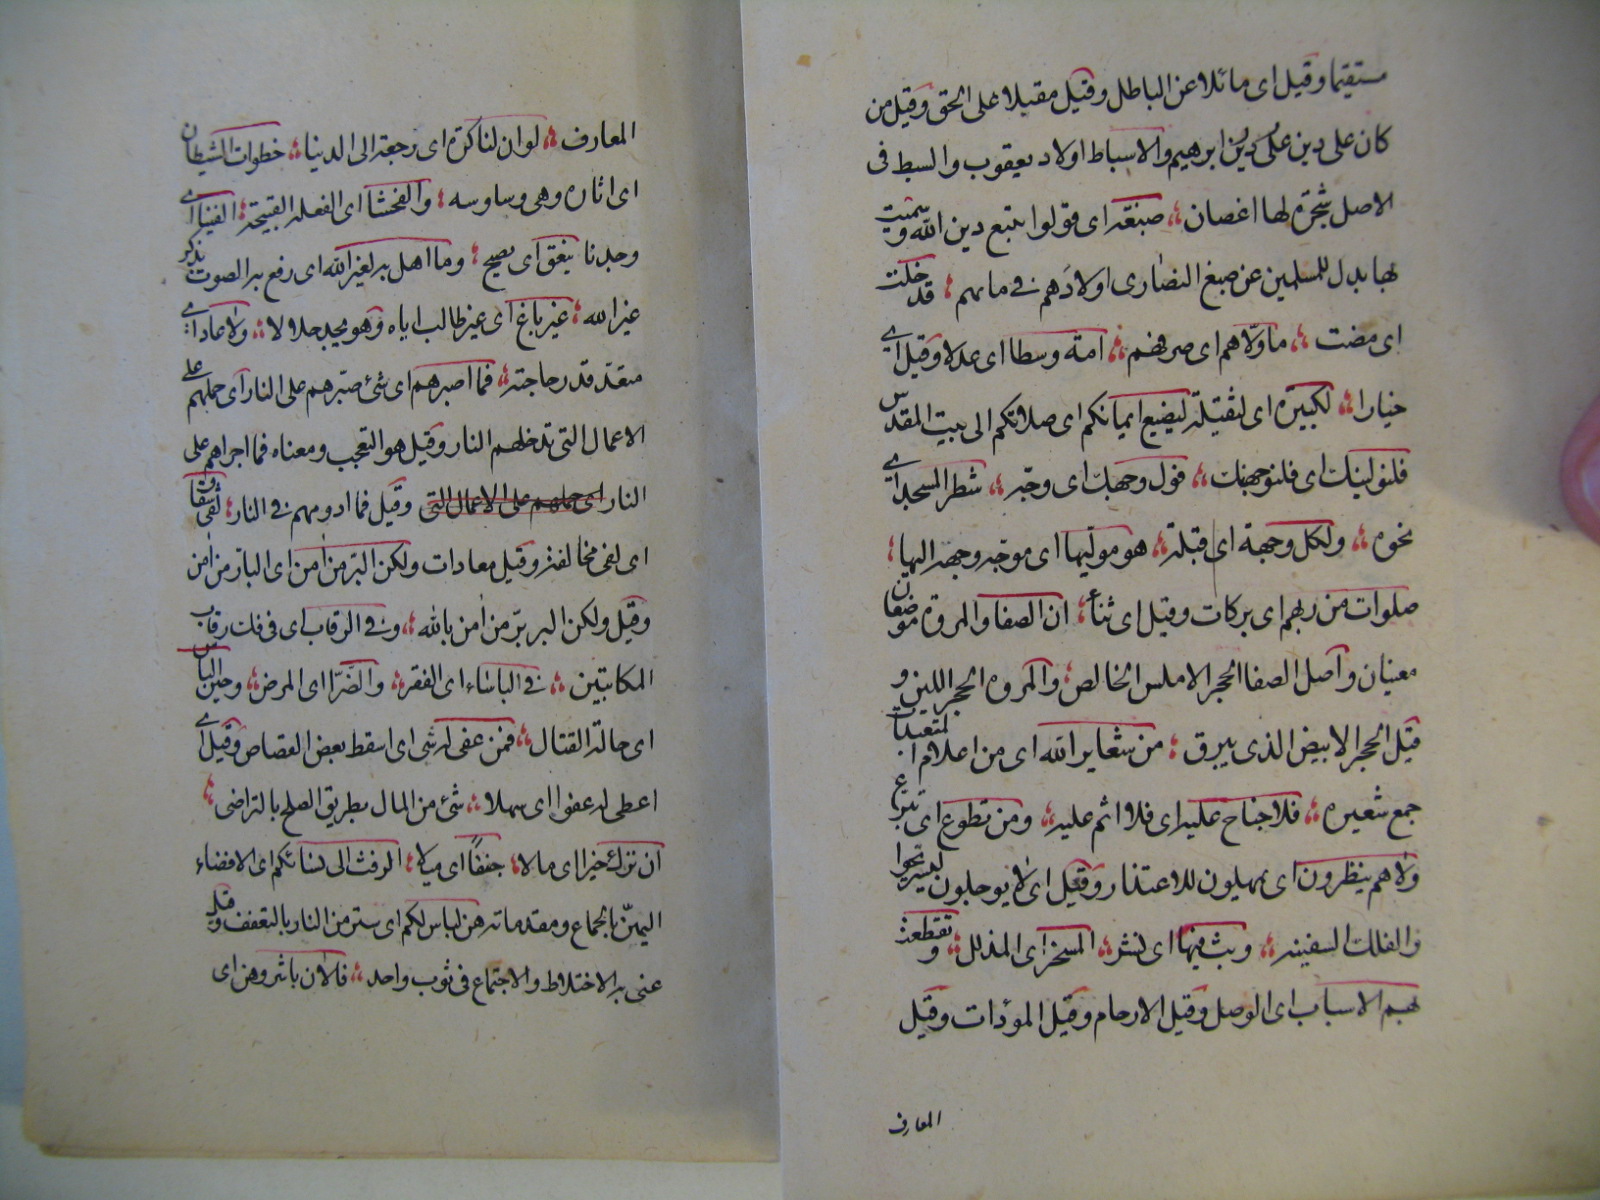 مستقيما وقيل اى مائلا عن الباطل وقيل مقبلا على الحق وقيل من
كان على دين على دين ابرهيم والاسباط اولاد يعقوب والسبط فى
الاصل شجرة لها اغصان صبغة اى قولوا نتبع دين الله وسميت
بها بدل للمسلمين عن صبغ النصارى اولادهم فى مائهم قد خلت
اى مضت ما ولاهم اى صرفهم امة وسطا اى عدلا وقيل اى
خيارا لكبيرة اى لثقيلة ليضيع ايمانكم اى صلاتكم الى بيت المقدس
فلنولينك اى فلنوجهنك فول وجهك اى وجّه شطر المسجد اى
نحوه ولكل وجهة اى قبلة هو موليها اى موجه وجهه اليها
صلوات من ربهم اى بركات وقيل اى ثناء ان الصفا والمروة موضعان
معنيان واصل الصفا الحجر الاملس الخالص والمروه الحجر اللين و
قيل الحجر الابيض الذى يبرق من شعاير الله اى من اعلام متعبداته
جمع شعيره فلا جناح عليه اى فلا اثم عليه ومن تطوع اى تبرع
ولاهم ينظرون اى يمهلون للاعتذار وقيل اى لا يوجلون ليستريحوا
والفلك السفينه وبث فيها اى نشر المسخر اى المذلل وتقطعت
بهم الاسباب اى الوصل وقيل الارحام وقيل المودات وقيل
المعارف
المعارف لو ان لنا كرة اى رجعة الى الدنيا خطوات الشيطان
اى اثاره وهى وساوسه والفحشا اى الفعلة القبيحة الفينا اى
وجدنا ينعق اى يصيح وما اهل به لغير الله اى رفع به الصوت بذكر
غير الله غير باغ اى غير طالب اياه وهو يجد حلالا ولا عاد اى
متعدّ قدر حاجته فما اصبرهم اى شئ صبّرهم على النار اى حملهم على
الاعمال التى تدخلهم النار وقيل هو التعجب ومعناه فما اجراهم على
النار اى حملهم على الاعمال التى وقيل فما ادومهم فى النار لفى شقاق
اى لفى مخالفة وقيل معادات ولكن البر من امن اى البار من امن
وقيل ولكن البر برّ من امن بالله وفى الرقاب اى فى فك رقاب
المكاتبين فى الباساء اى الفقر والضّرّا اى المرض وحين الباس
اى حالة القتال فمن عفى له شى اى اسقط بعض القصاص وقيل اى
اعطى له عفوا اى سهلا شئ من المال بطريق الصلح بالتراضى
ان ترك خيرا اى مالا جنفا اى ميلا الرفث الى نسائكم اى الافضاء
اليهنّ بالجماع ومقدماته هن لباس لكم اى ستر من النار بالتعفف وقيل
عنى به الاختلاط والاجتماع فى ثوب واحد فالان باشروهن اى